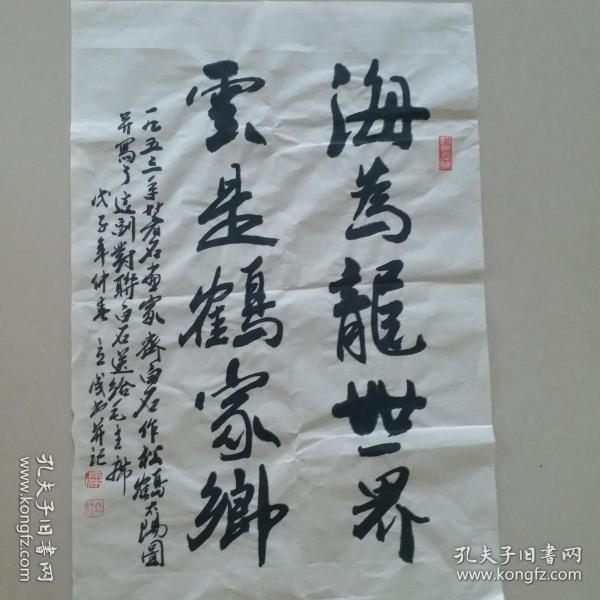 海為龍世界
雲是鶴家鄉
一九五三年著名画家齊白石作松鶴太陽圖
并寫了這副對聯白石送给毛主席
戊子年仲春 立成书并记
孔夫子旧書网
www.kongfz.com
孔夫子旧書网
www.kongfz.com